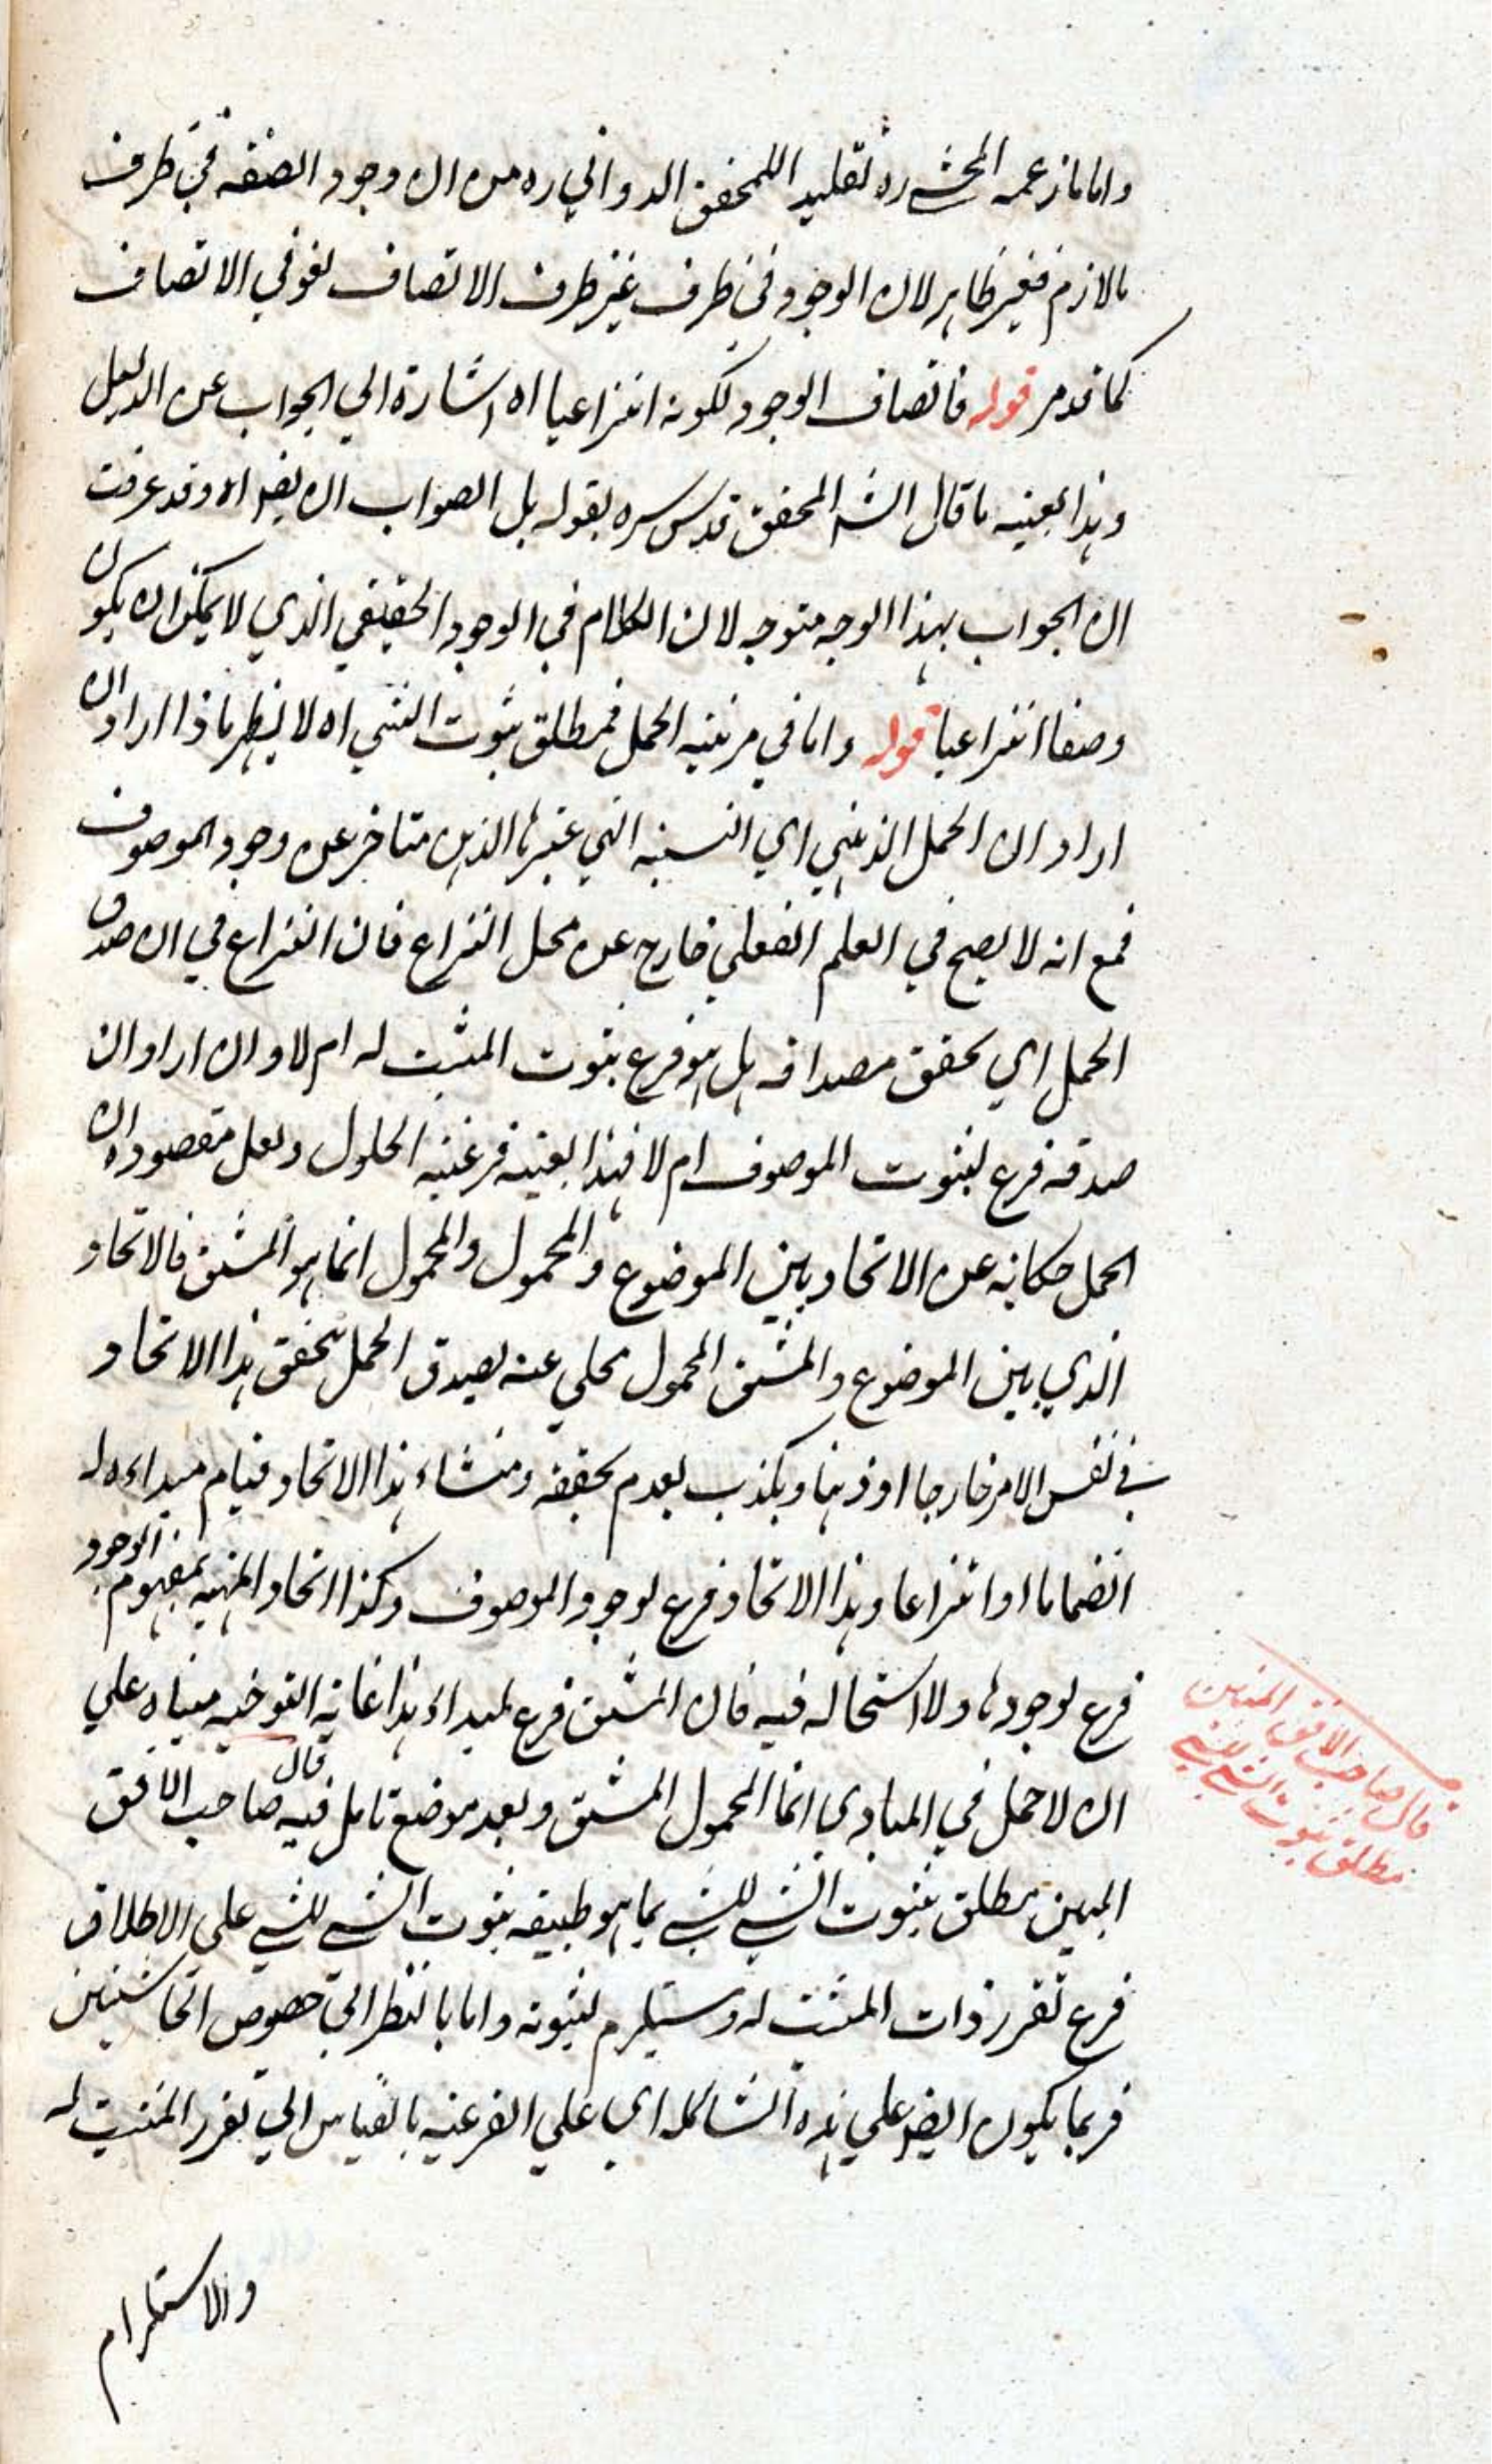 واما ما زعمه المحشي ره تقليدا للمحقق الدواني ره من ان وجود الصفة في ظرف
بالازم فغير ظاهر لان الوجود في ظرف غير ظرف الاتصاف لغو في الاتصاف
كما قد مر قوله فاتصاف الوجود لكونه انتزاعيا اه اشارة الي الجواب عن الدليل
وهذا بعينه ما قال الشه المحقق قدس سره بقوله بل الصواب ان يقه اه وقد عرفت
ان الجواب بهذا الوجه متوجه لان الكلام في الوجود الحقيقي الذي لا يمكن ان يكون
وصفا انتزاعيا قوله واما في مرتبة الحمل فمطلق ثبوت الشي اه لا يظهر ماذا اراد ان
اراد ان الحمل الذهني اي النسبة التي عنبرها الذهن متاخر عن وجود الموصوف
فمع انه لا يصح في العلم الفعلي خارج عن محل النزاع فان النزاع في ان صدق
الحمل اي تحقق مصداقه هل هو فرع ثبوت المثبت له ام لا وان اراد ان
صدقه فرع لثبوت الموصوف ام لا فهذا بعينه فرعية الحلول ولعل مقصوده ان
الحمل حكاية عن الاتحاد بين الموضوع والمحمول والمحمول انما هو المشتق فالاتحاد
الذي بين الموضوع والمشتق المحمول محكي عنه يصدق الحمل بتحقق هذا الاتحاد
في نفس الامر خارجا او ذهنا ويكذب بعدم تحققه ومنشاء هذا الاتحاد قيام مبداءه له
انضماما او انتزاعا وهذا الاتحاد فرع لوجود الموصوف وكذا اتحاد المهية بمفهوم الوجود
فرع لوجودها ولا استحالة فيه فان المشتق فرع لمبداء هذا غاية التوجيه مبناه علي
ان لا حمل في المبادي انما المحمول المشتق وبعد موضع تامل فيه قال صاحب الافق
المبين مطلق ثبوت الشي للشي بما هو طبيعة ثبوت الشي للشي علي الاطلاق
فرع تقرر ذات المثبت له ومستلزم لثبوته واما بالنظر الي خصوص الحاشيتين
فربما يكون ايضه علي هذه الشاكلة اي علي الفرعية بالقياس الي تقرر المثبت له
والاستلزام
قال صاحب الافق المبين
مطلق ثبوت الشي للشي